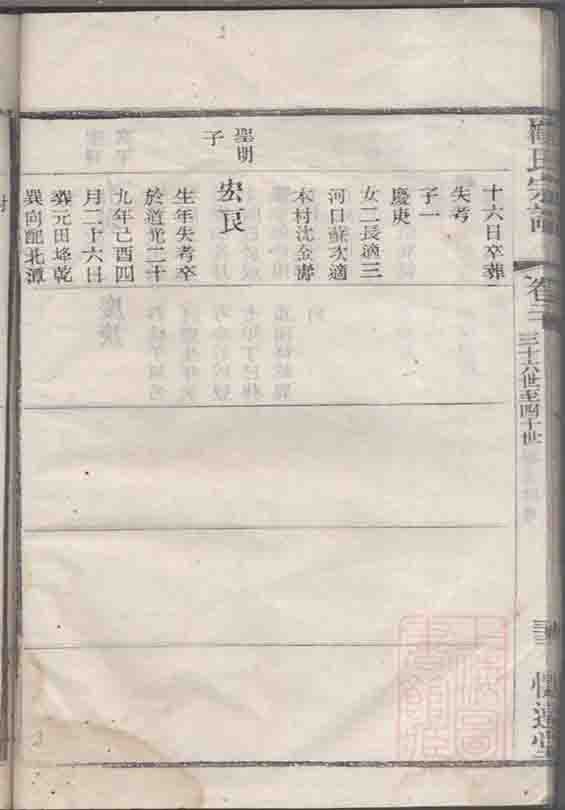 氏宗譜
卷二
三十六世至四十世
懷遠堂
十六日卒葬
失考
子一
慶庚
女二長適三
河口蘇次適
木村沈金壽
聖明
子
宏良
生年失考卒
於道光二十
九年己酉四
月二十六日
葬元田垰乾
巽向配北潭